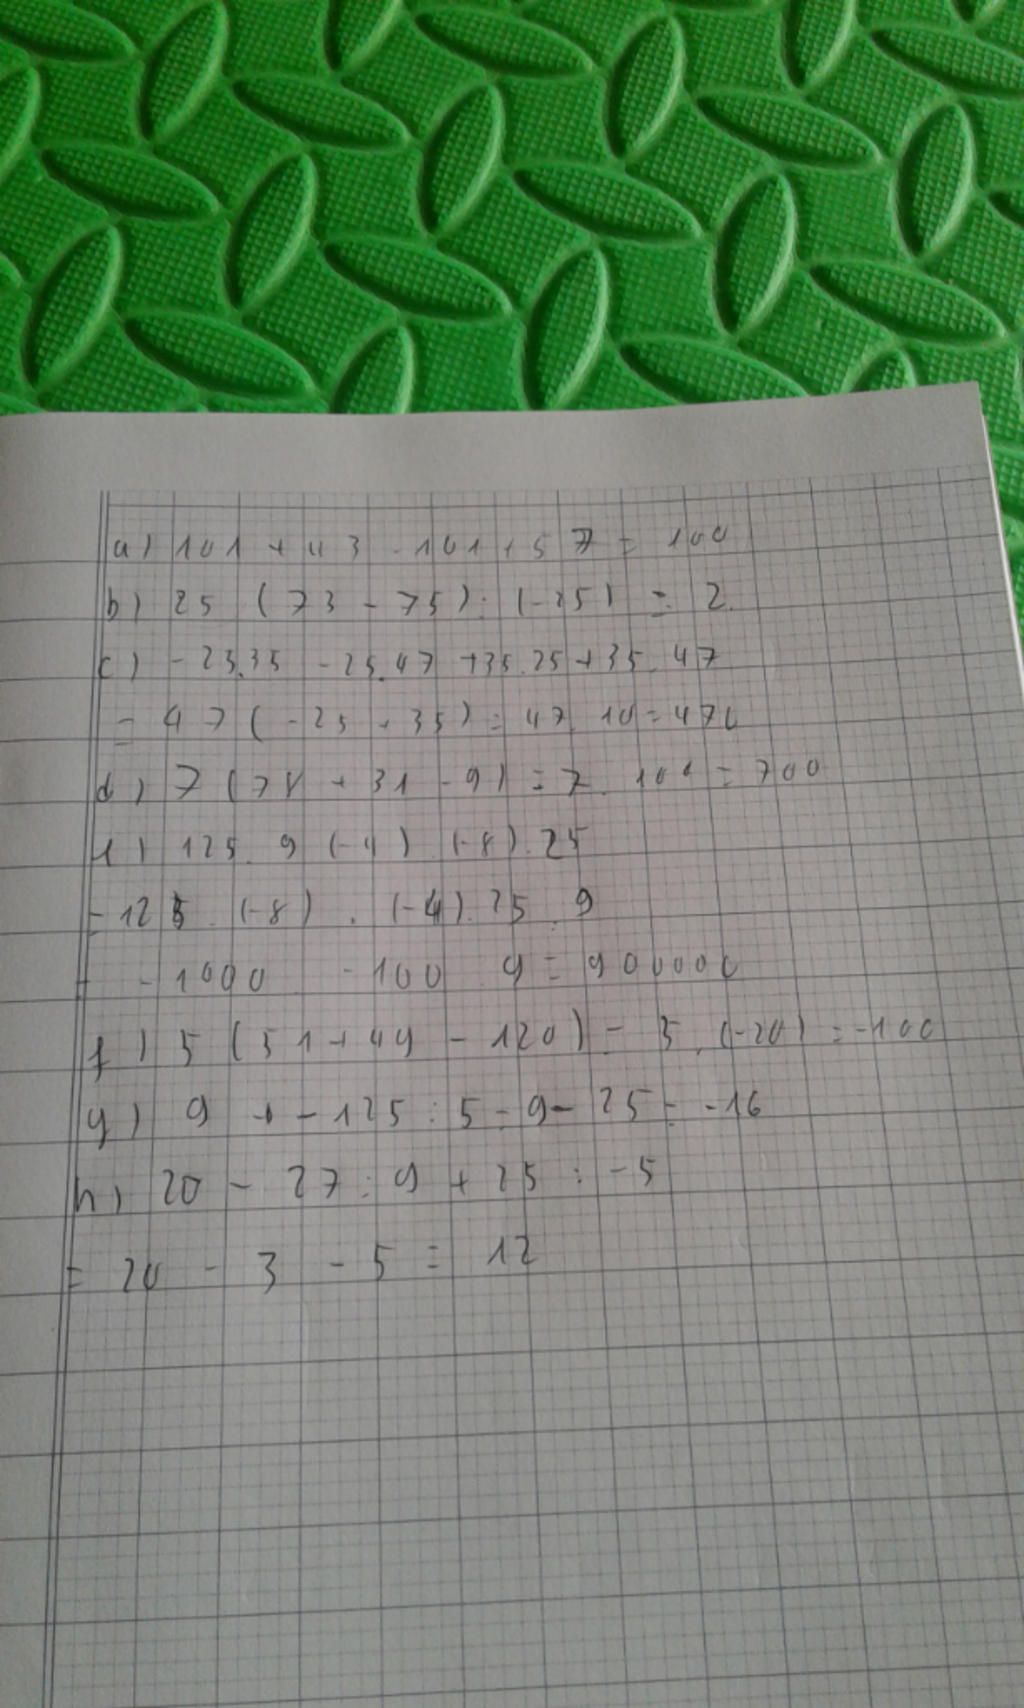 a) 101 + 43 - 101 + 57 = 100
b) 25 (73 - 75) : (-25) = 2
c) - 25.35 - 25.47 + 35.25 + 35.47
= 47 (-25 + 35) = 47.10 = 470
d) 7 (78 + 31 - 9) = 7.100 = 700
125.9 (-4).(-8).25
125.(-8).(-4).25.9
-1000 -100.9 = 900000
f) 5 (51 + 49 - 120) = 5.(-20) = -100
g) 9 + -125 : 5 = 9 - 25 = -16
h) 20 - 27 : 9 + 25 : -5
= 20 - 3 - 5 = 12